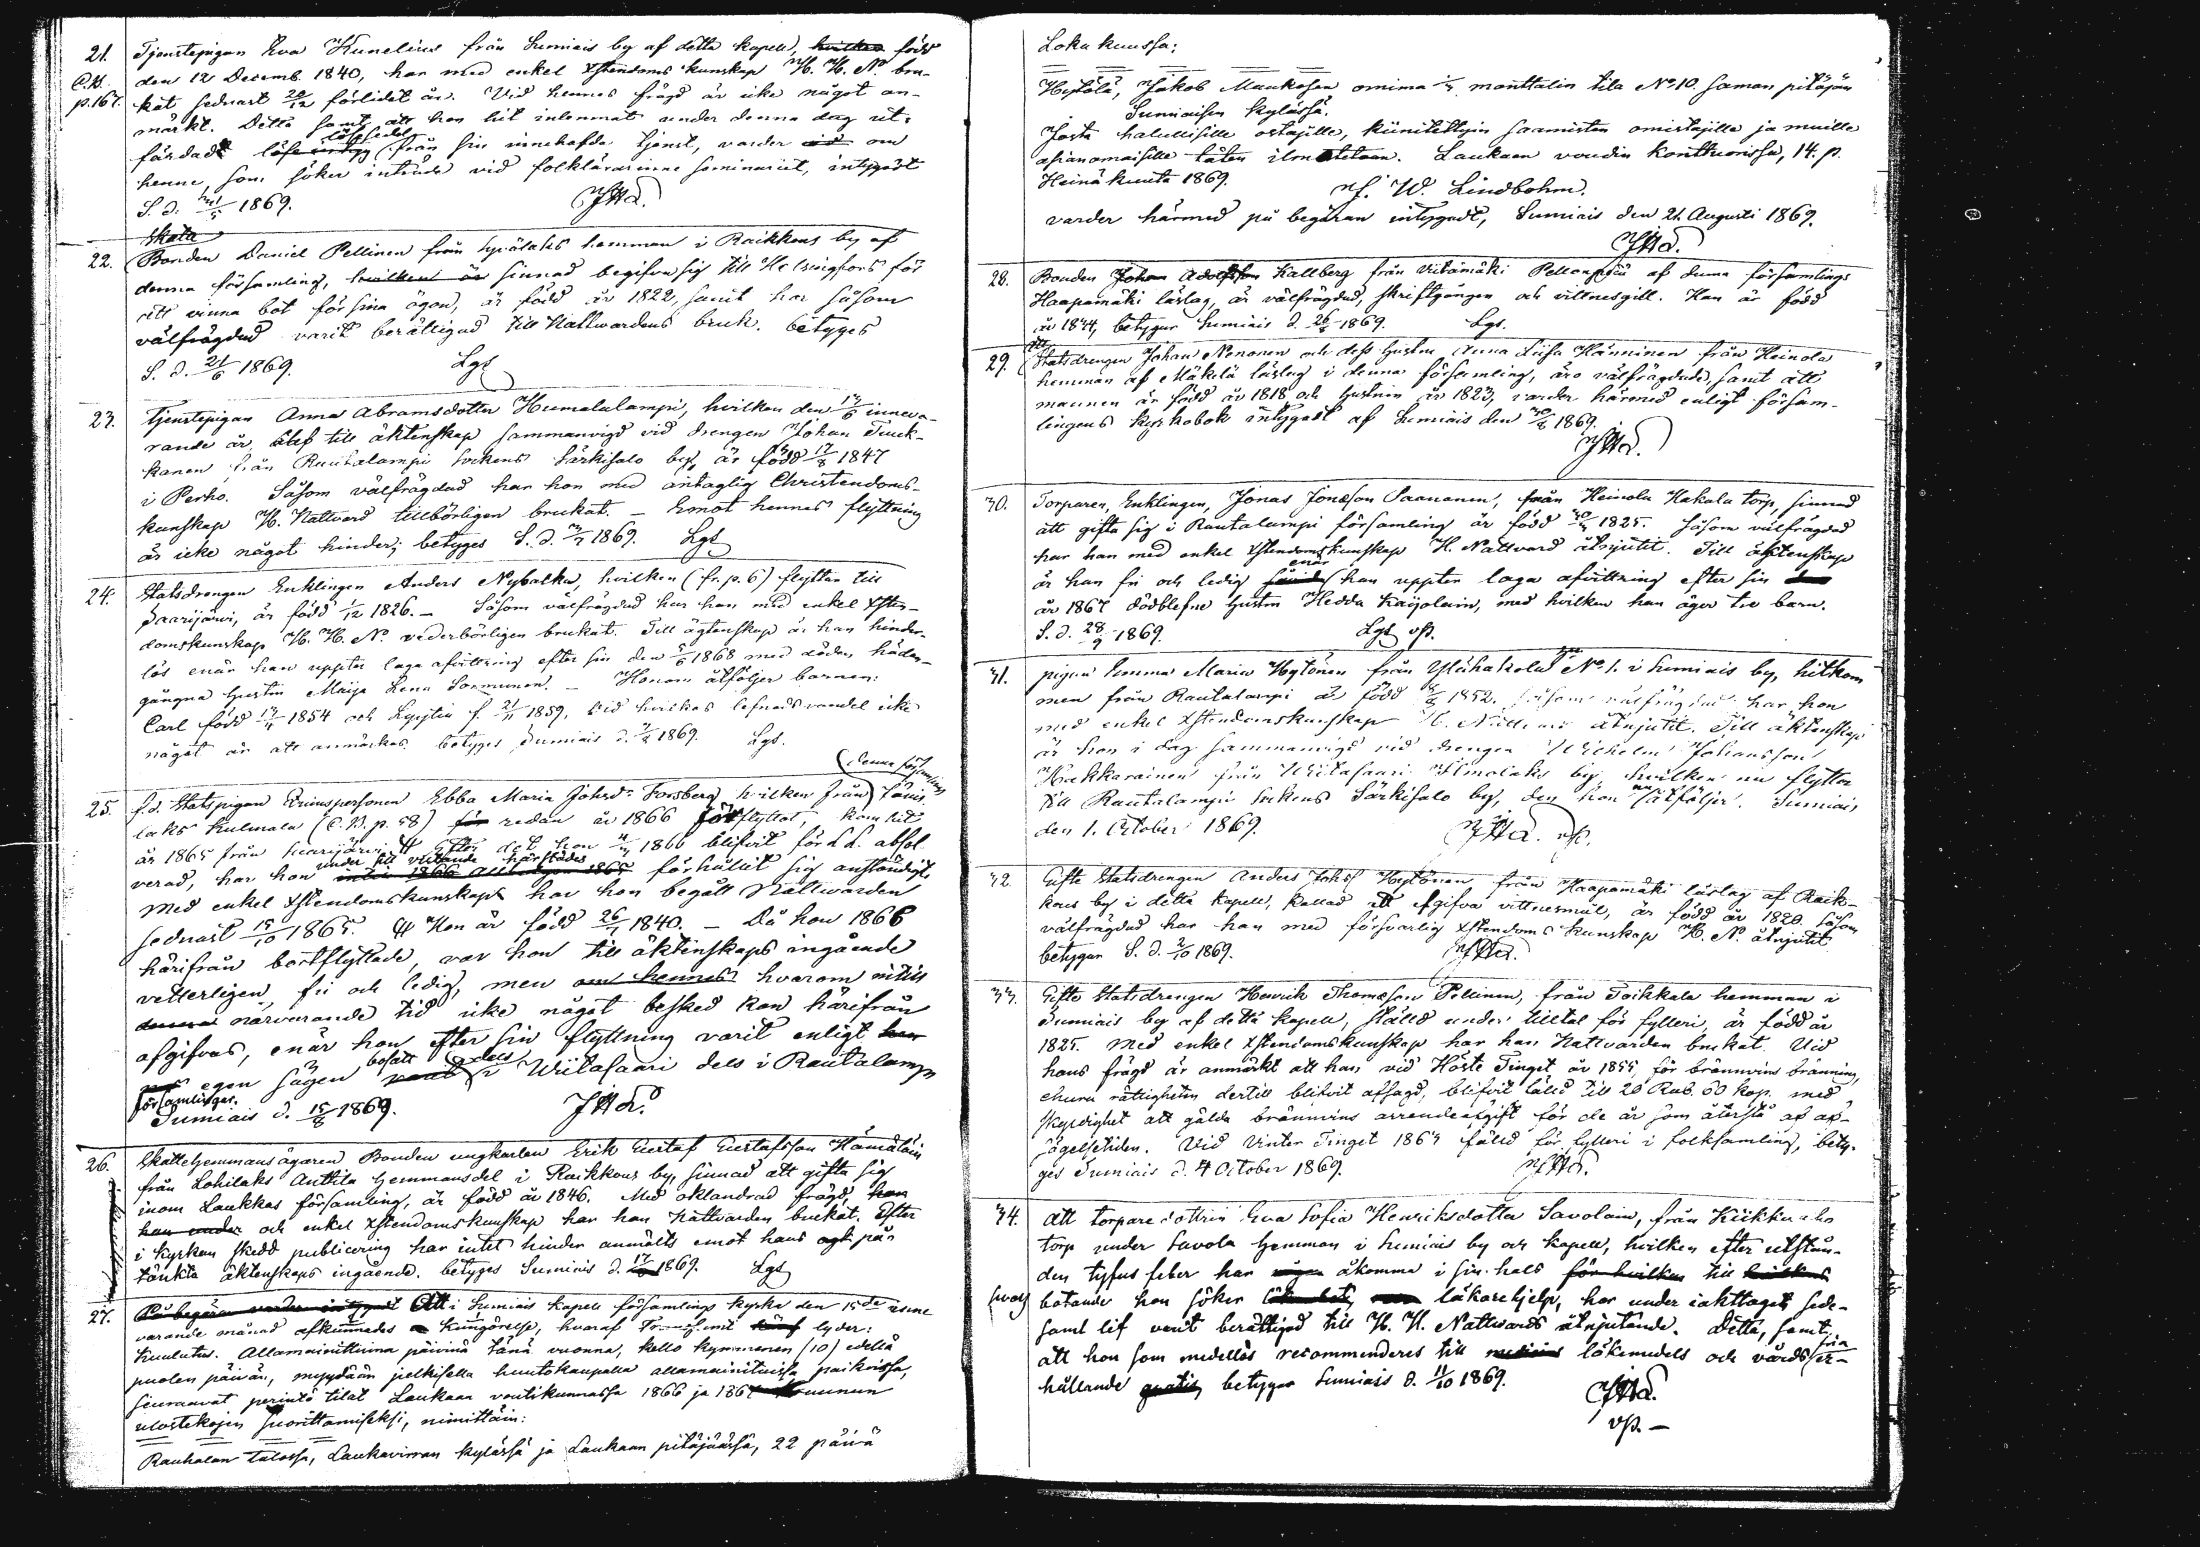 21. Tjenstepigan Eva Hunelius från Sumiais by af detta kapell, hvilken född
C.B. den 12 Decemb. 1840, har med enkel Xstendoms kunskap H. H. N. bru-
p.167. kat sednast 20/12 förlidet år. Vid hennes frägd är icke något an-
märkt. Detta samt att hon hit inlemnat under denna dag ut-
löpsedel
färdadt från sin innehafde tjenst, varder om
henne, som söker inträde vid folklärarinne seminariet, intygadt
S. d. 1869.
Skatte
22. Bonden Daniel Pellinen från hemman i Raikkaus by af
denna församling, hvilken är sinnad begifva sig till Helsingfors för
att vinna bot för sina ögon, är född år 1822, samt har såsom
välfrägdad varit berättigad till Nattwardens bruk. betyges
S. d. 21/6 1869. Lgs
23. Tjenstepigan Anna Abramsdotter Humalalampi, hvilken den inneva-
rande år blef till äktenskap sammanvigd vid drengen Johan Tuuk-
kanen från Rautalampi Sockens Särkisalo by, är född 17/8 1847
i Perho. Såsom välfrägdad har hon med antaglig Christendoms-
kunskap H. Nattvard tillbörligen brukat. — Emot hennes flyttning
är icke något hinder; betyges S. d. 1869. Lgs
24. Statsdrengen Enklingen Anders Nybacka, hvilken (fr. p. 6) flyttar till
Saarijärvi, är född 1/12 1826. — Såsom välfrägdad har han med enkel Xsten-
domskunskap H. H. N. vederbörligen brukat. Till ägtenskap är han hinder-
lös enär han uppter laga afvittring efter sin den 1868 med döden hädan-
gångna hustru Maija Lena Sormunen. — Honom åtföljer barnen:
Carl född 1854 och f. 21/11 1859, vid hvilkas lefnadsvandel icke
något är att anmärkas betyges Sumiais d. 1869. Lgs.
(denna församlings
25. f.d. Statspigan Qvinspersonen Ebba Maria Johsdr Forsberg hvilken från
laks Kulmala (C.B. p. 58) för redan år 1866 flyttat, kom hit
år 1865 från Saarijärvi # efter det hon 1866 blifvit för L. L. absol-
under sitt vistande härstädes
verad, har hon förhållit sig anständigt
Med enkel Xstendomskunskap har hon begått Nattwarden
sednast 15/10 1865. # Hon är född 26/ 1840. — Då hon 1866
härifrån bortflyttade, var hon till äktenskaps ingående
vetterligen fri och ledig, men om hennes hvarom intill
denna närvarande tid icke något besked kan härifrån
afgifvas, enär hon efter sin flyttning varit enligt
egen sägen bosatt dels i Wiitasaari dels i Rautalampi
församlingar.
Sumiais d. 15/8 1869.
26. Skattehemmansägaren Bonden ungkarlen Erik Gustaf Gustafsson Hämäläin
från Lohilaks Anttila hemmansdel i Raikkaus by, sinnad att gifta sig
inom Laukkas församling, är född år 1846. Med oklandrad frägd, han
han under och enkel Xstendomskunskap har han Nattvarden brukat. Efter
i kyrkan skedd publicering har intet hinder anmälts emot hans på-
tänkta äktenskaps ingående. betyges Sumiais d. 1869. Lgs
27. På begäran varder intygadt Att i Sumiais kapell församlings kyrka den 15de inne
varande månad afkunnades kungörelse, hvaraf lyder:
Kuulutus. Allamainittuina päivinä tänä vuonna, kello kymmenen (10) edellä
puolen päivän, myydään julkisella huutokaupalla allamainituissa paikoissa,
seuraavat perintö tilat Laukaan voutikunnassa 1866 ja 1867 kruunun
ulostekojen suorittamiseksi, nimittäin:
Rauhalan talossa, Laukavirran kylässä ja Laukaan pitäjäässä, 22 päivä
Loka kuussa:
Hytölä, Jakob Maukosen omima manttalin tila No 10. saman pitäjän
Sumiaisen kylässä.
Josta halullisille ostajille, kiinitettyin saamisten omistajille ja muille
asianomaisille täten ilmoitetaan. Laukaan voudin konttuorissa, 14. p.
Heinäkuuta 1869. W. Lindbohm.
varder härmed på begäran intygadt, Sumiais den 21 Augusti 1869.
28. Bonden Johan Adolfsson Kallberg från Viitamäki af denna församlings
Haapamäki läslag, är välfrägdad, skriftgången och vittnesgill. Han är född
år 1844, betygar Sumiais d. 26/8 1869. Lgs.
Att
29. Statsdrengen Johan Nenonen och dess hustru Anna Liisa Hänninen från Heinola
hemman af Mäkilä läslag i denna församling, äro välfrägdade samt att
mannen är född år 1818 och hustrun år 1823, varder härmed enligt försam-
lingens kyrkobok intygadt af Sumiais den 1869.
30. Torparen, Enklingen, Jonas Jonasson Paananen, från Heinola Hakala torp, sinnad
att gifta sig i Rautalampi församling är född 1825. Såsom välfrägdad
har han med enkel Xstendomskunskap H. Nattvard åtnjutit. Till äktenskap
enär
är han fri och ledig han uppter laga afvittring efter sin
år 1867 dödblefne hustru Hedda med hvilken han äger tre barn.
S. d. 28/9 1869. Lgs vp.
31. pigan Emma Maria Hytönen från No 1. i Sumiais by, hitkom
men från Rautalampi är född 1852. Såsom välfrägdad har hon
med enkel Xstendomskunskap H. Nattvard åtnjutit. Till äktenskap
är hon i dag sammanvigd vid drengen Wilhelm Johansson
Kakkarainen från Wiitasaari Ilmolaks by, hvilken nu flyttar
till Rautalampi Sockens Särkisalo by, den hon nu åtföljer. Sumiais
den 1. October 1869. vp.
32. Gifte Statsdrengen Anders Johsf Hytönen från Haapamäki läslag af Raik-
kaus by i detta kapell, kallad att afgifva vittnesmål, är född år 1820. Såsom
välfrägdad har han med försvarlig Xstendoms kunskap H. N. åtnjutit
betygar S. d. 2/10 1869.
33. Gifte Statsdrengen Henrik Thomasson Pellinen, från Toikkala hemman i
Sumiais by af detta kapell, stäld under tilltal för fylleri, är född år
1825. Med enkel Xstendomskunskap har han Nattvarden brukat. Vid
hans frägd är anmärkt att han vid Höste Tinget år 1855, för brännvins bränning,
ehuru rättigheten dertill blifvit afsagd, blifvit fäld till 20 Rub. 60 kop. med
skyldighet att gälda brännvins arrendeafgift för de år som återstå af
Vid Vinter Tinget 1867 fälld för fylleri i folksamling, bety-
ges Sumiais d. 4 October 1869.
34. Att torpare dottren Eva Sofia Henriksdotter Savolain, från Kiikku aho
torp under Savola hemman i Sumiais by och kapell, hvilken efter utstån-
den tyfus feber har åkomma i sin hals för hvilken till hvilkens
botande hon söker läkarehjelp, har under iakttaget sede-
samt lif varit berättigad till H. H. Nattvards åtnjutande. Detta, samt
att hon som medellös recommenderas till läkemedels och vårds fria er-
hållande gratis, betygar Sumiais d. 11/10 1869.
vp. —